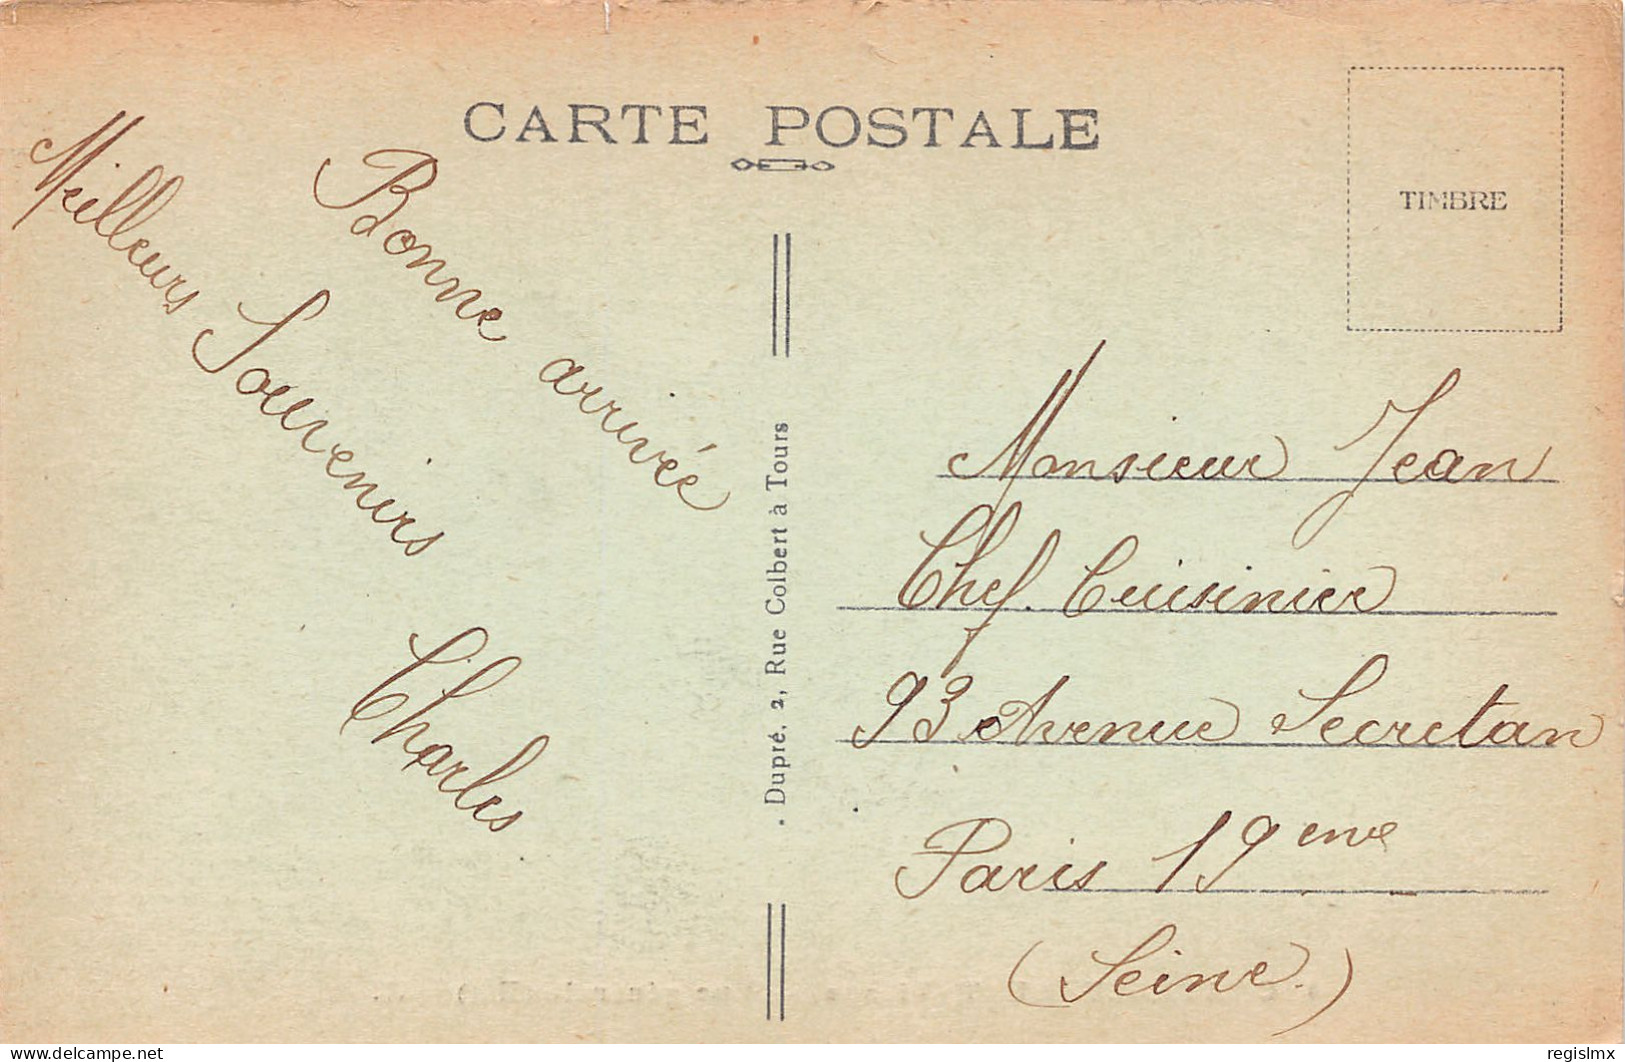 CARTE POSTALE
TIMBRE
Bonne arrivée
Meilleurs Souvenirs
Charles
Dupré. 2, Rue Colbert à Tours
Monsieur Jean
Chef. Cuisinier
93 Avenue Secretan
Paris 19eme
(Seine.)
delcampe.net
regislmx